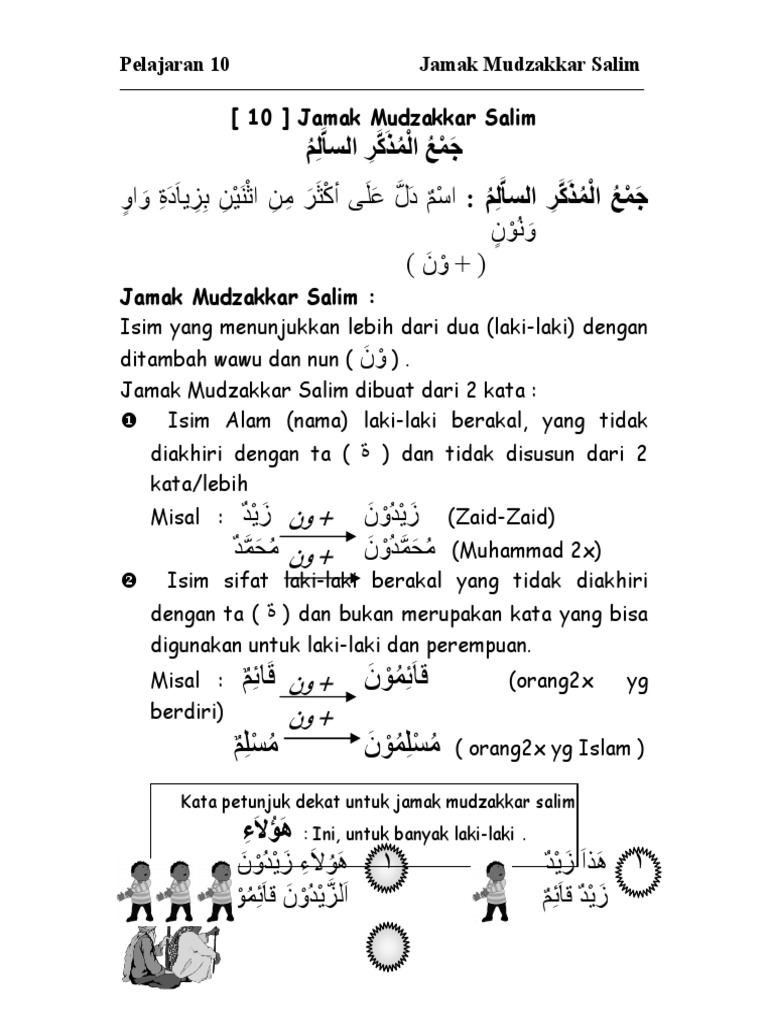 Pelajaran 10 Jamak Mudzakkar Salim
[ 10 ] Jamak Mudzakkar Salim
جَمْعُ الْمُذَكَّرِ السَّالِمُ
جَمْعُ الْمُذَكَّرِ السَّالِمُ : اسْمٌ دَلَّ عَلَى أَكْثَرَ مِنِ اثْنَيْنِ بِزِيَادَةِ وَاوٍ
وَنُوْنٍ
( + وْنَ )
Jamak Mudzakkar Salim :
Isim yang menunjukkan lebih dari dua (laki-laki) dengan
ditambah wawu dan nun ( وْنَ ) .
Jamak Mudzakkar Salim dibuat dari 2 kata :
❶ Isim Alam (nama) laki-laki berakal, yang tidak
diakhiri dengan ta ( ة ) dan tidak disusun dari 2
kata/lebih
Misal : زَيْدٌ + ون زَيْدُوْنَ (Zaid-Zaid)
مُحَمَّدٌ + ون مُحَمَّدُوْنَ (Muhammad 2x)
❷ Isim sifat laki-laki berakal yang tidak diakhiri
dengan ta ( ة ) dan bukan merupakan kata yang bisa
digunakan untuk laki-laki dan perempuan.
Misal : قَائِمٌ + ون قَائِمُوْنَ (orang2x yg
berdiri) + ون
مُسْلِمٌ مُسْلِمُوْنَ ( orang2x yg Islam )
Kata petunjuk dekat untuk jamak mudzakkar salim
هَؤُلَاءِ : Ini, untuk banyak laki-laki .
١ هَذَا زَيْدٌ ١ هَؤُلَاءِ زَيْدُوْنَ
زَيْدٌ قَائِمٌ اَلزَّيْدُوْنَ قَائِمُوْ